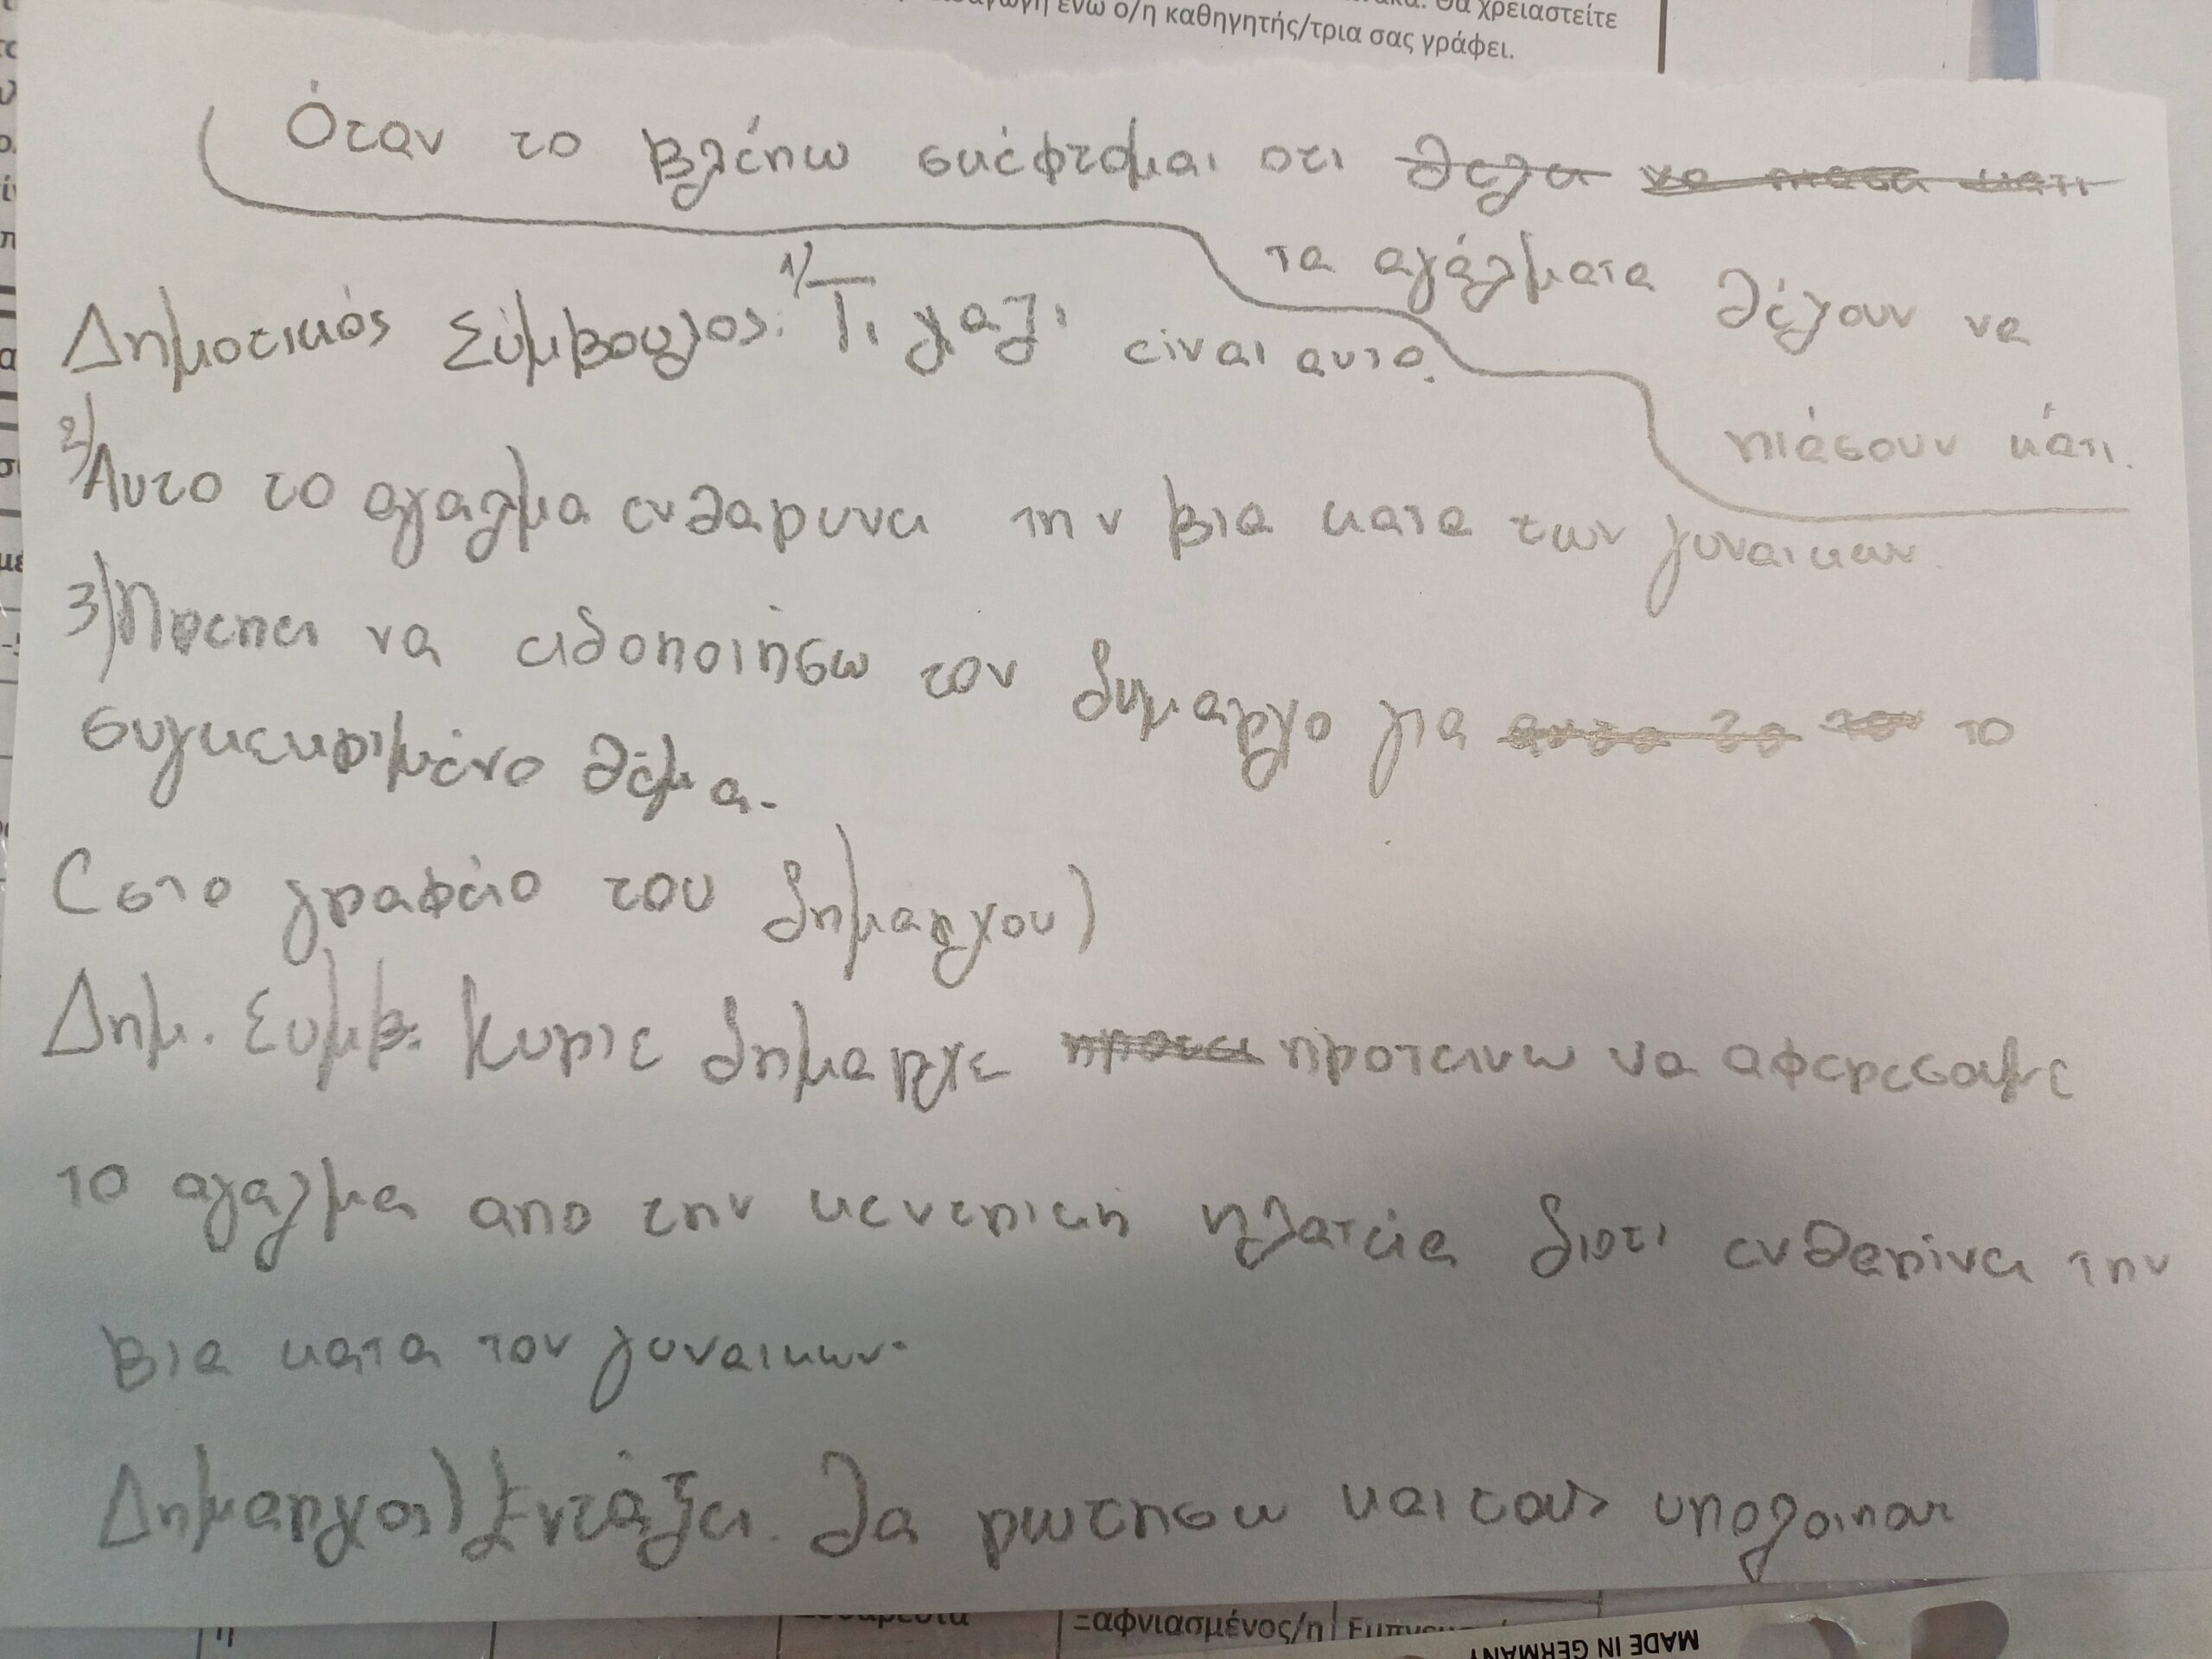 Θα χρειαστείτε
ενώ ο/η καθηγητής/τρια σας γράφει.
Όταν το βλέπω σκέφτομαι οτι θελει να πιασει κατι
τα αγάλματα θέλουν να
πιάσουν κάτι.
Δημοτικός Σύμβουλος: 1) Τι χαζι είναι αυτο.
2) Αυτο το αγαλμα ενθαρυνει την βια κατα των γυναικων.
3) Πρεπει να ειδοποιήσω τον δυμαρχο για αυτο το το
συγκεκριμένο θέμα.
(στο γραφείο του δημαρχου)
Δημ. Συμβ: Κυριε δημαρχε προτεινω να αφερεσουμε
το αγαλμα απο την κεντρικη πλατεία διοτι ενθαρίνει την
βια κατα τον γυναικων.
Δημαρχος) Εντάξει. Θα ρωτησω και τους υπολοιπους
Ξαφνιασμένος/η
MADE IN GERMANY